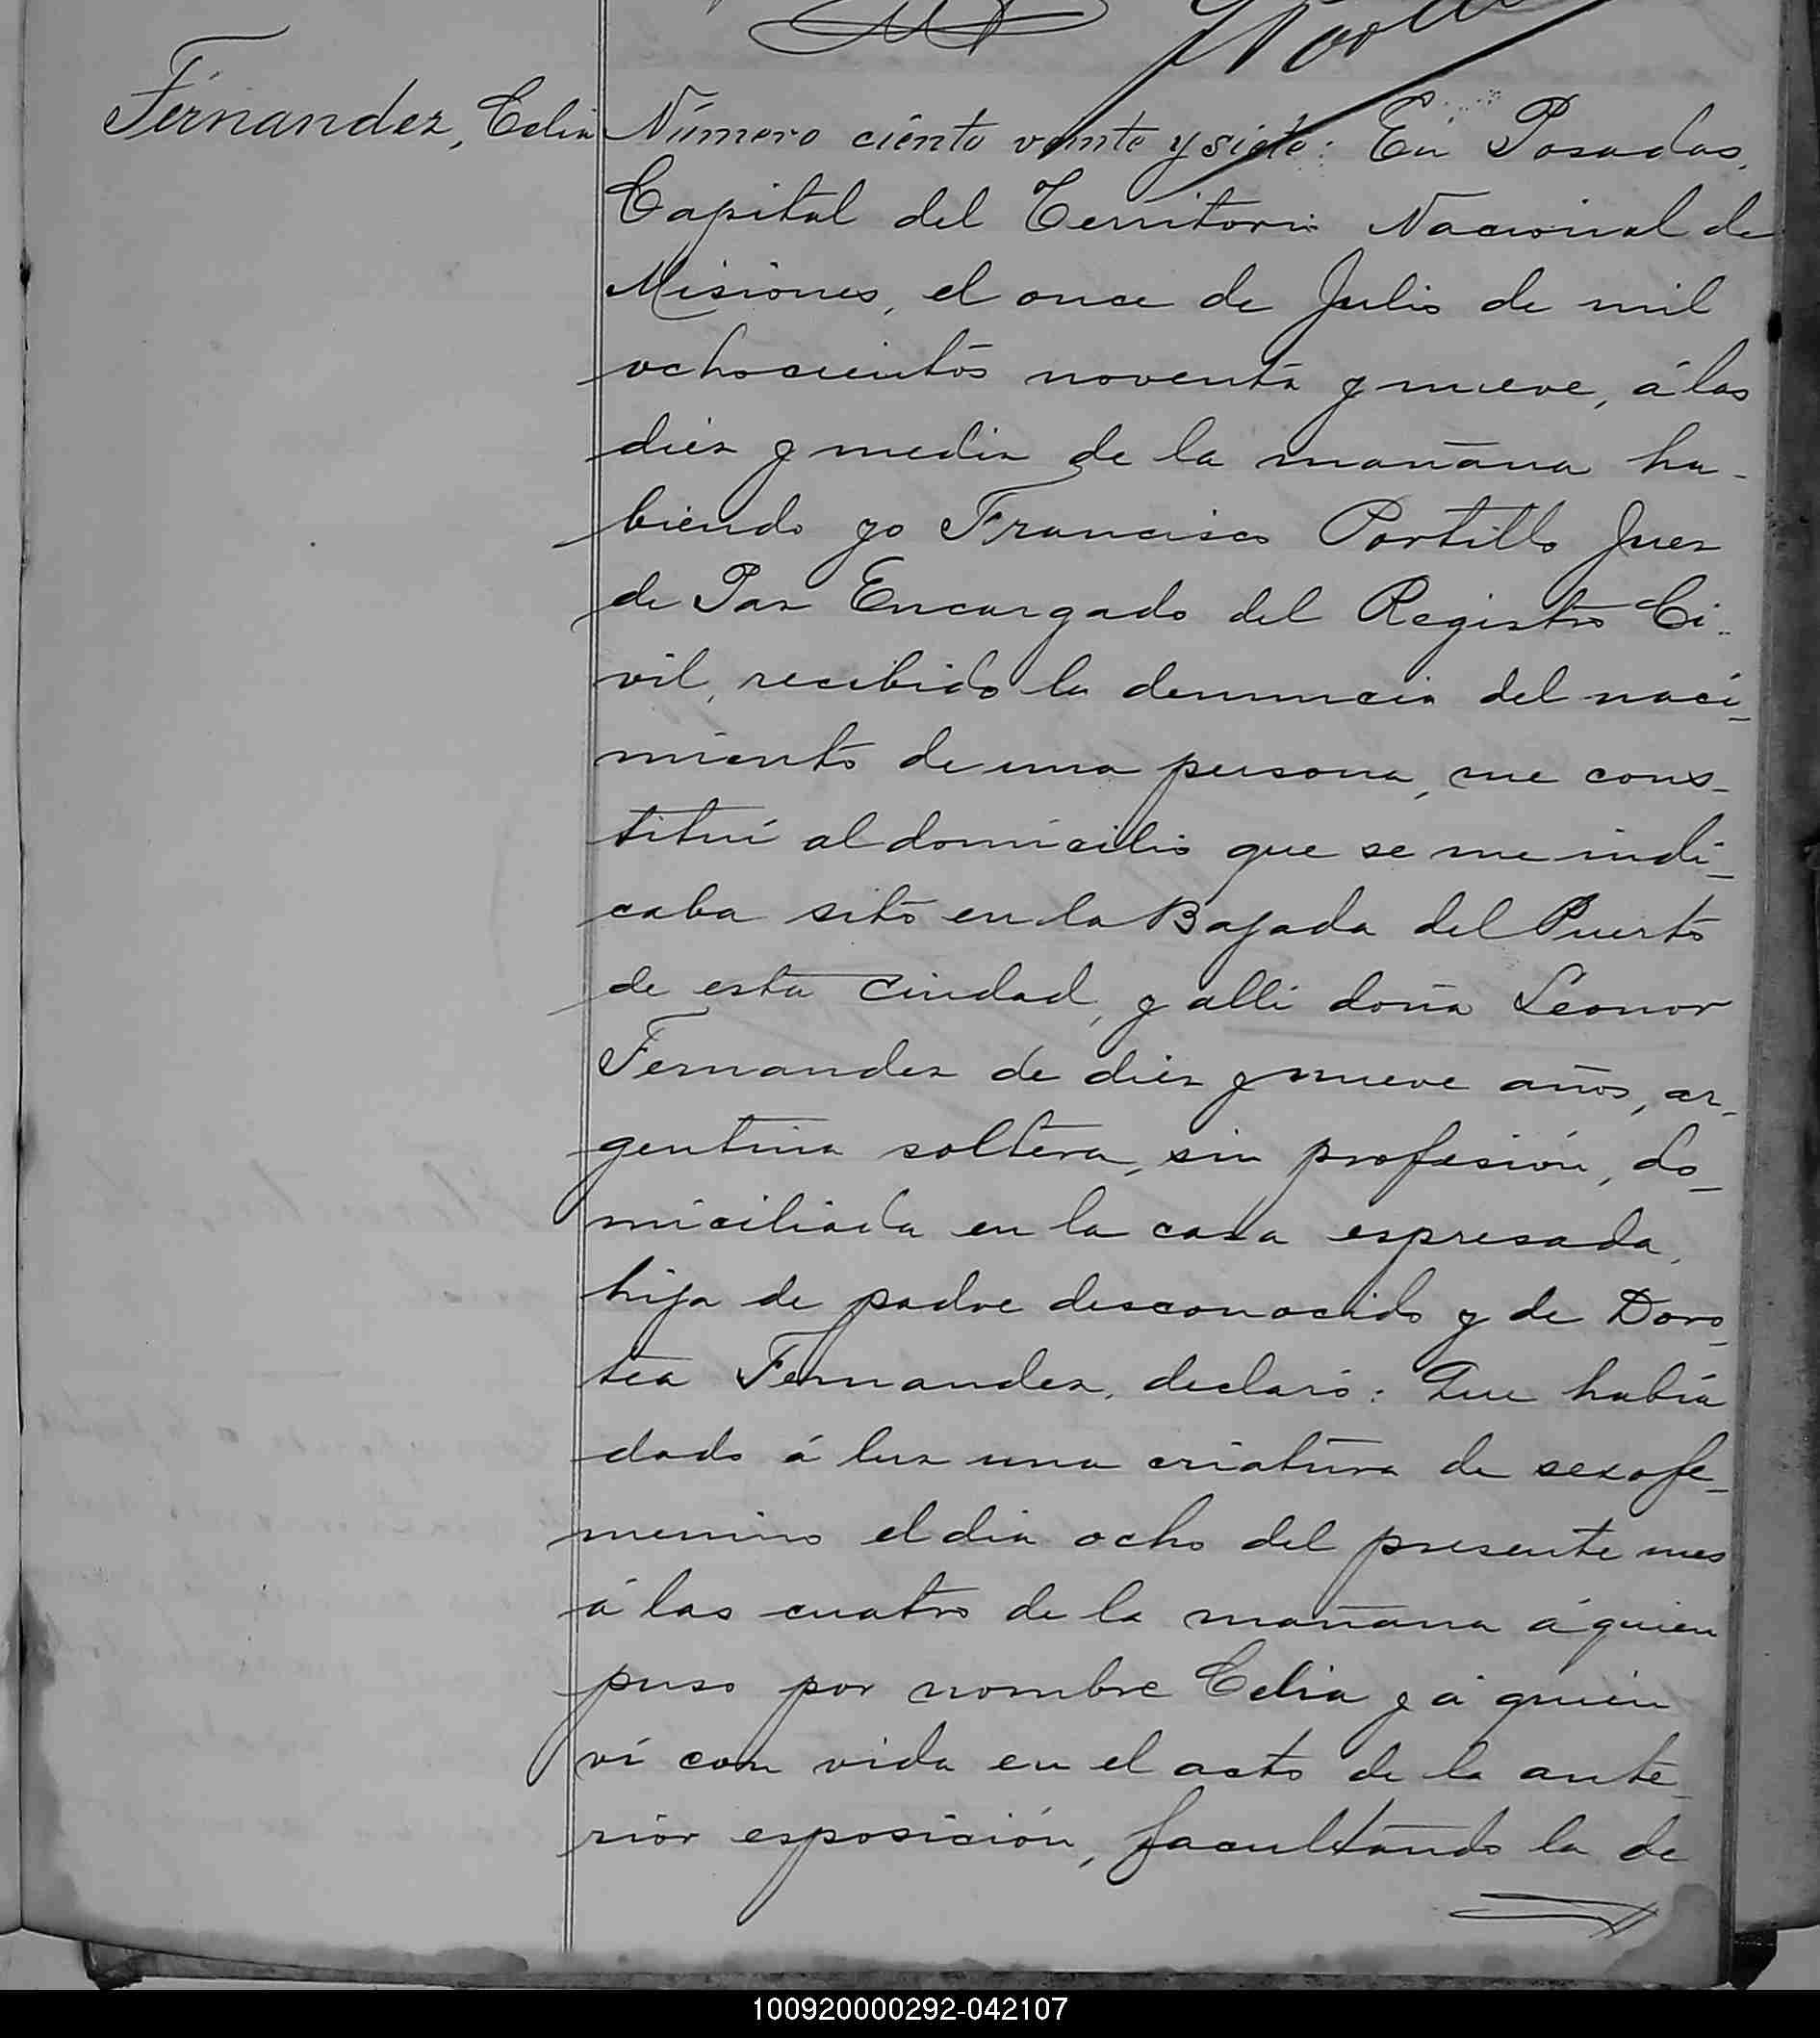 Fernandez, Celia
Número ciento veinte y siete: En Posadas,
Capital del Territorio Nacional de
Misiones, el once de Julio de mil
ochocientos noventa y nueve, á las
diez y media de la mañana ha-
biendo yo Francisco Portillo Juez
de Paz Encargado del Registro Ci-
vil, recibido la denuncia del naci-
miento de una persona, me cons-
tituí al domicilio que se me indi-
caba sito en la Bajada del Puerto
de esta Ciudad, y alli doña Leonor
Fernandez de diez y nueve años, ar-
gentina soltera, sin profesión, do-
miciliada en la casa espresada,
hija de padre desconocido y de Doro-
tea Fernandez, declaró: Que habia
dado á luz una criatura de sexo fe-
menino el dia ocho del presente mes
á las cuatro de la mañana á quien
puso por nombre Celia y á quien
ví con vida en el acto de la ante-
rior esposición, facultando la de
100920000292-042107